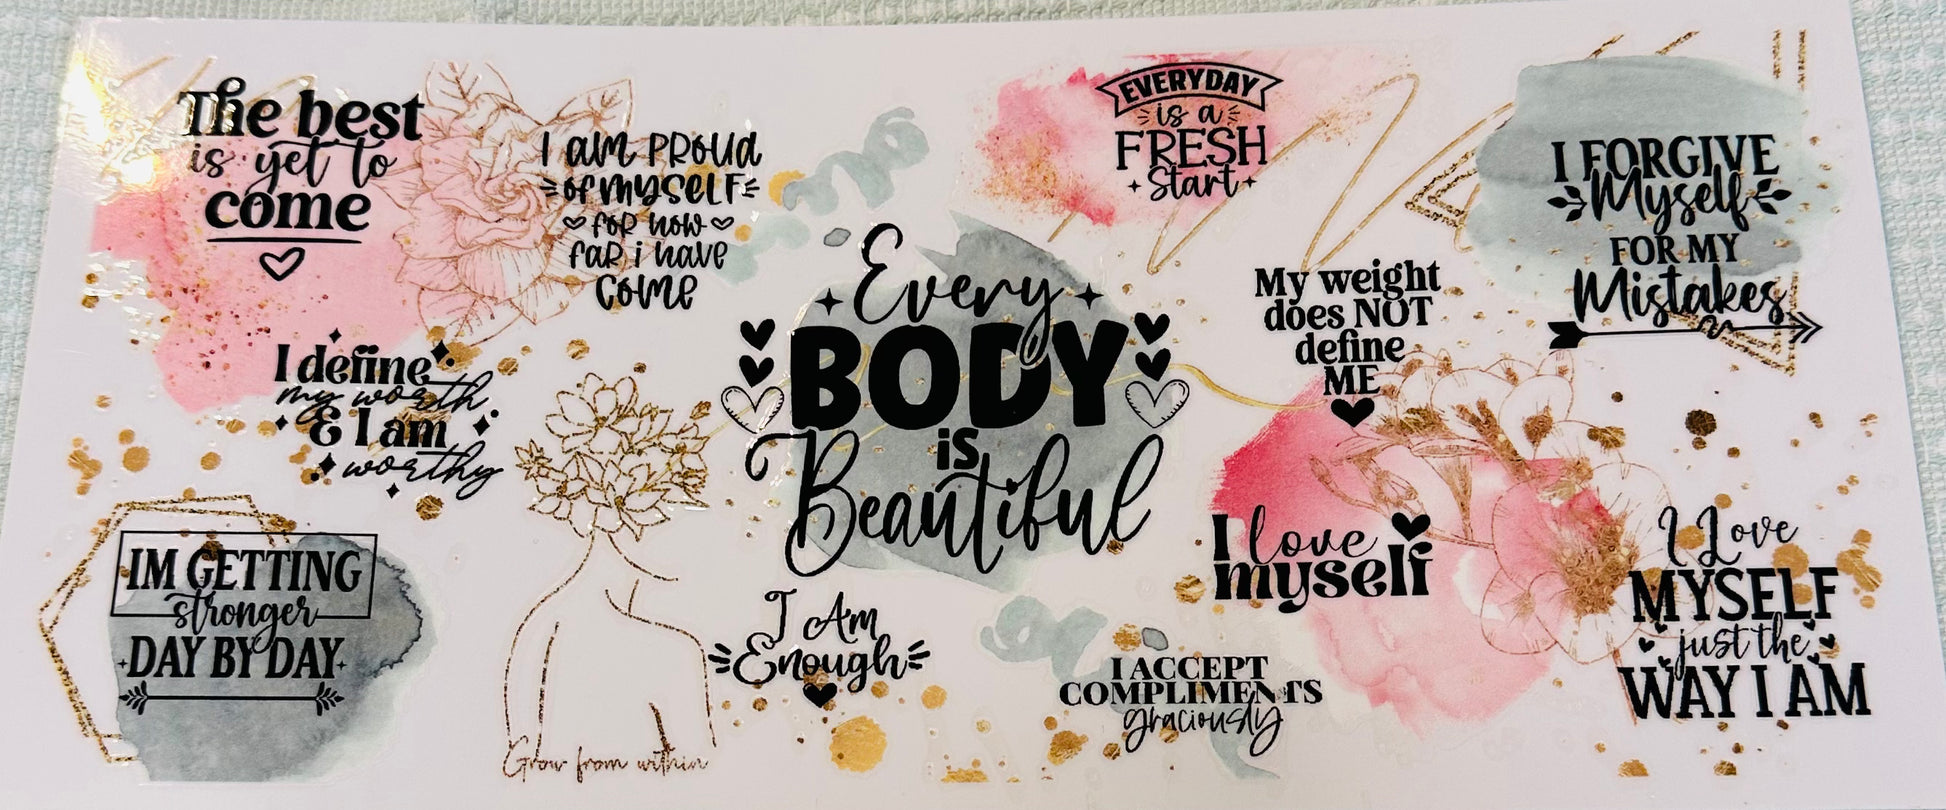 The best
is yet to
come
I am proud
of myself
for how
far i have
come
EVERYDAY
is a
FRESH
Start
I FORGIVE
Myself
FOR MY
Mistakes
Every
BODY
is
Beautiful
My weight
does NOT
define
ME
I define
my worth
& I am
worthy
IM GETTING
stronger
DAY BY DAY
Grow from within
I Am
Enough
I love
myself
I ACCEPT
COMPLIMENTS
graciously
I Love
MYSELF
just the
WAY I AM